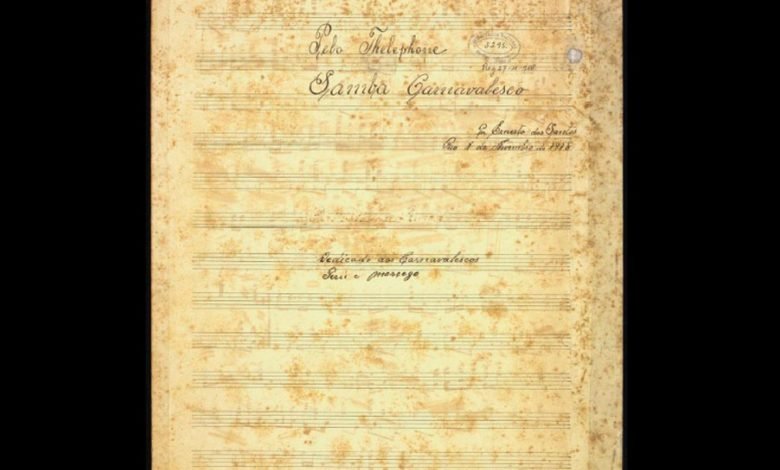 Pelo Thelephone
3.295
Samba Carnavalesco
Ernesto dos Santos
Rio 1 de Novembro de 1916
Dedicado aos Carnavalescos
Perú e morcego